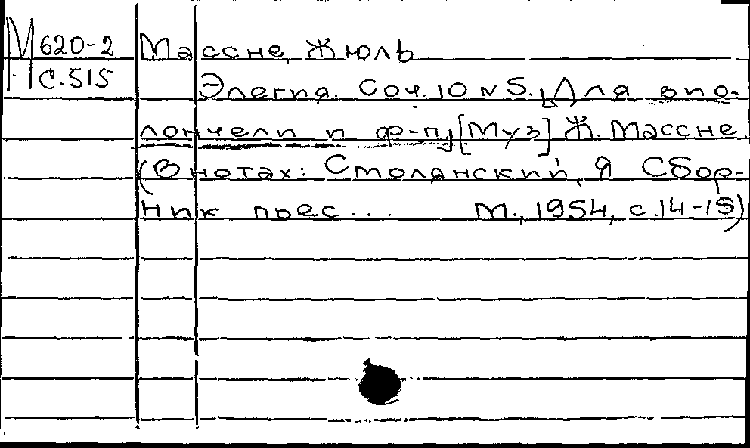 М620-2 Массне, Жюль
С.515
Элегия. Соч. 10 N 5. Для вио-
лончели и ф-п, [Муз] Ж. Массне.
(В нотах: Столянский, Я Сбор-
ник пьес... М., 1954, с. 14-15)